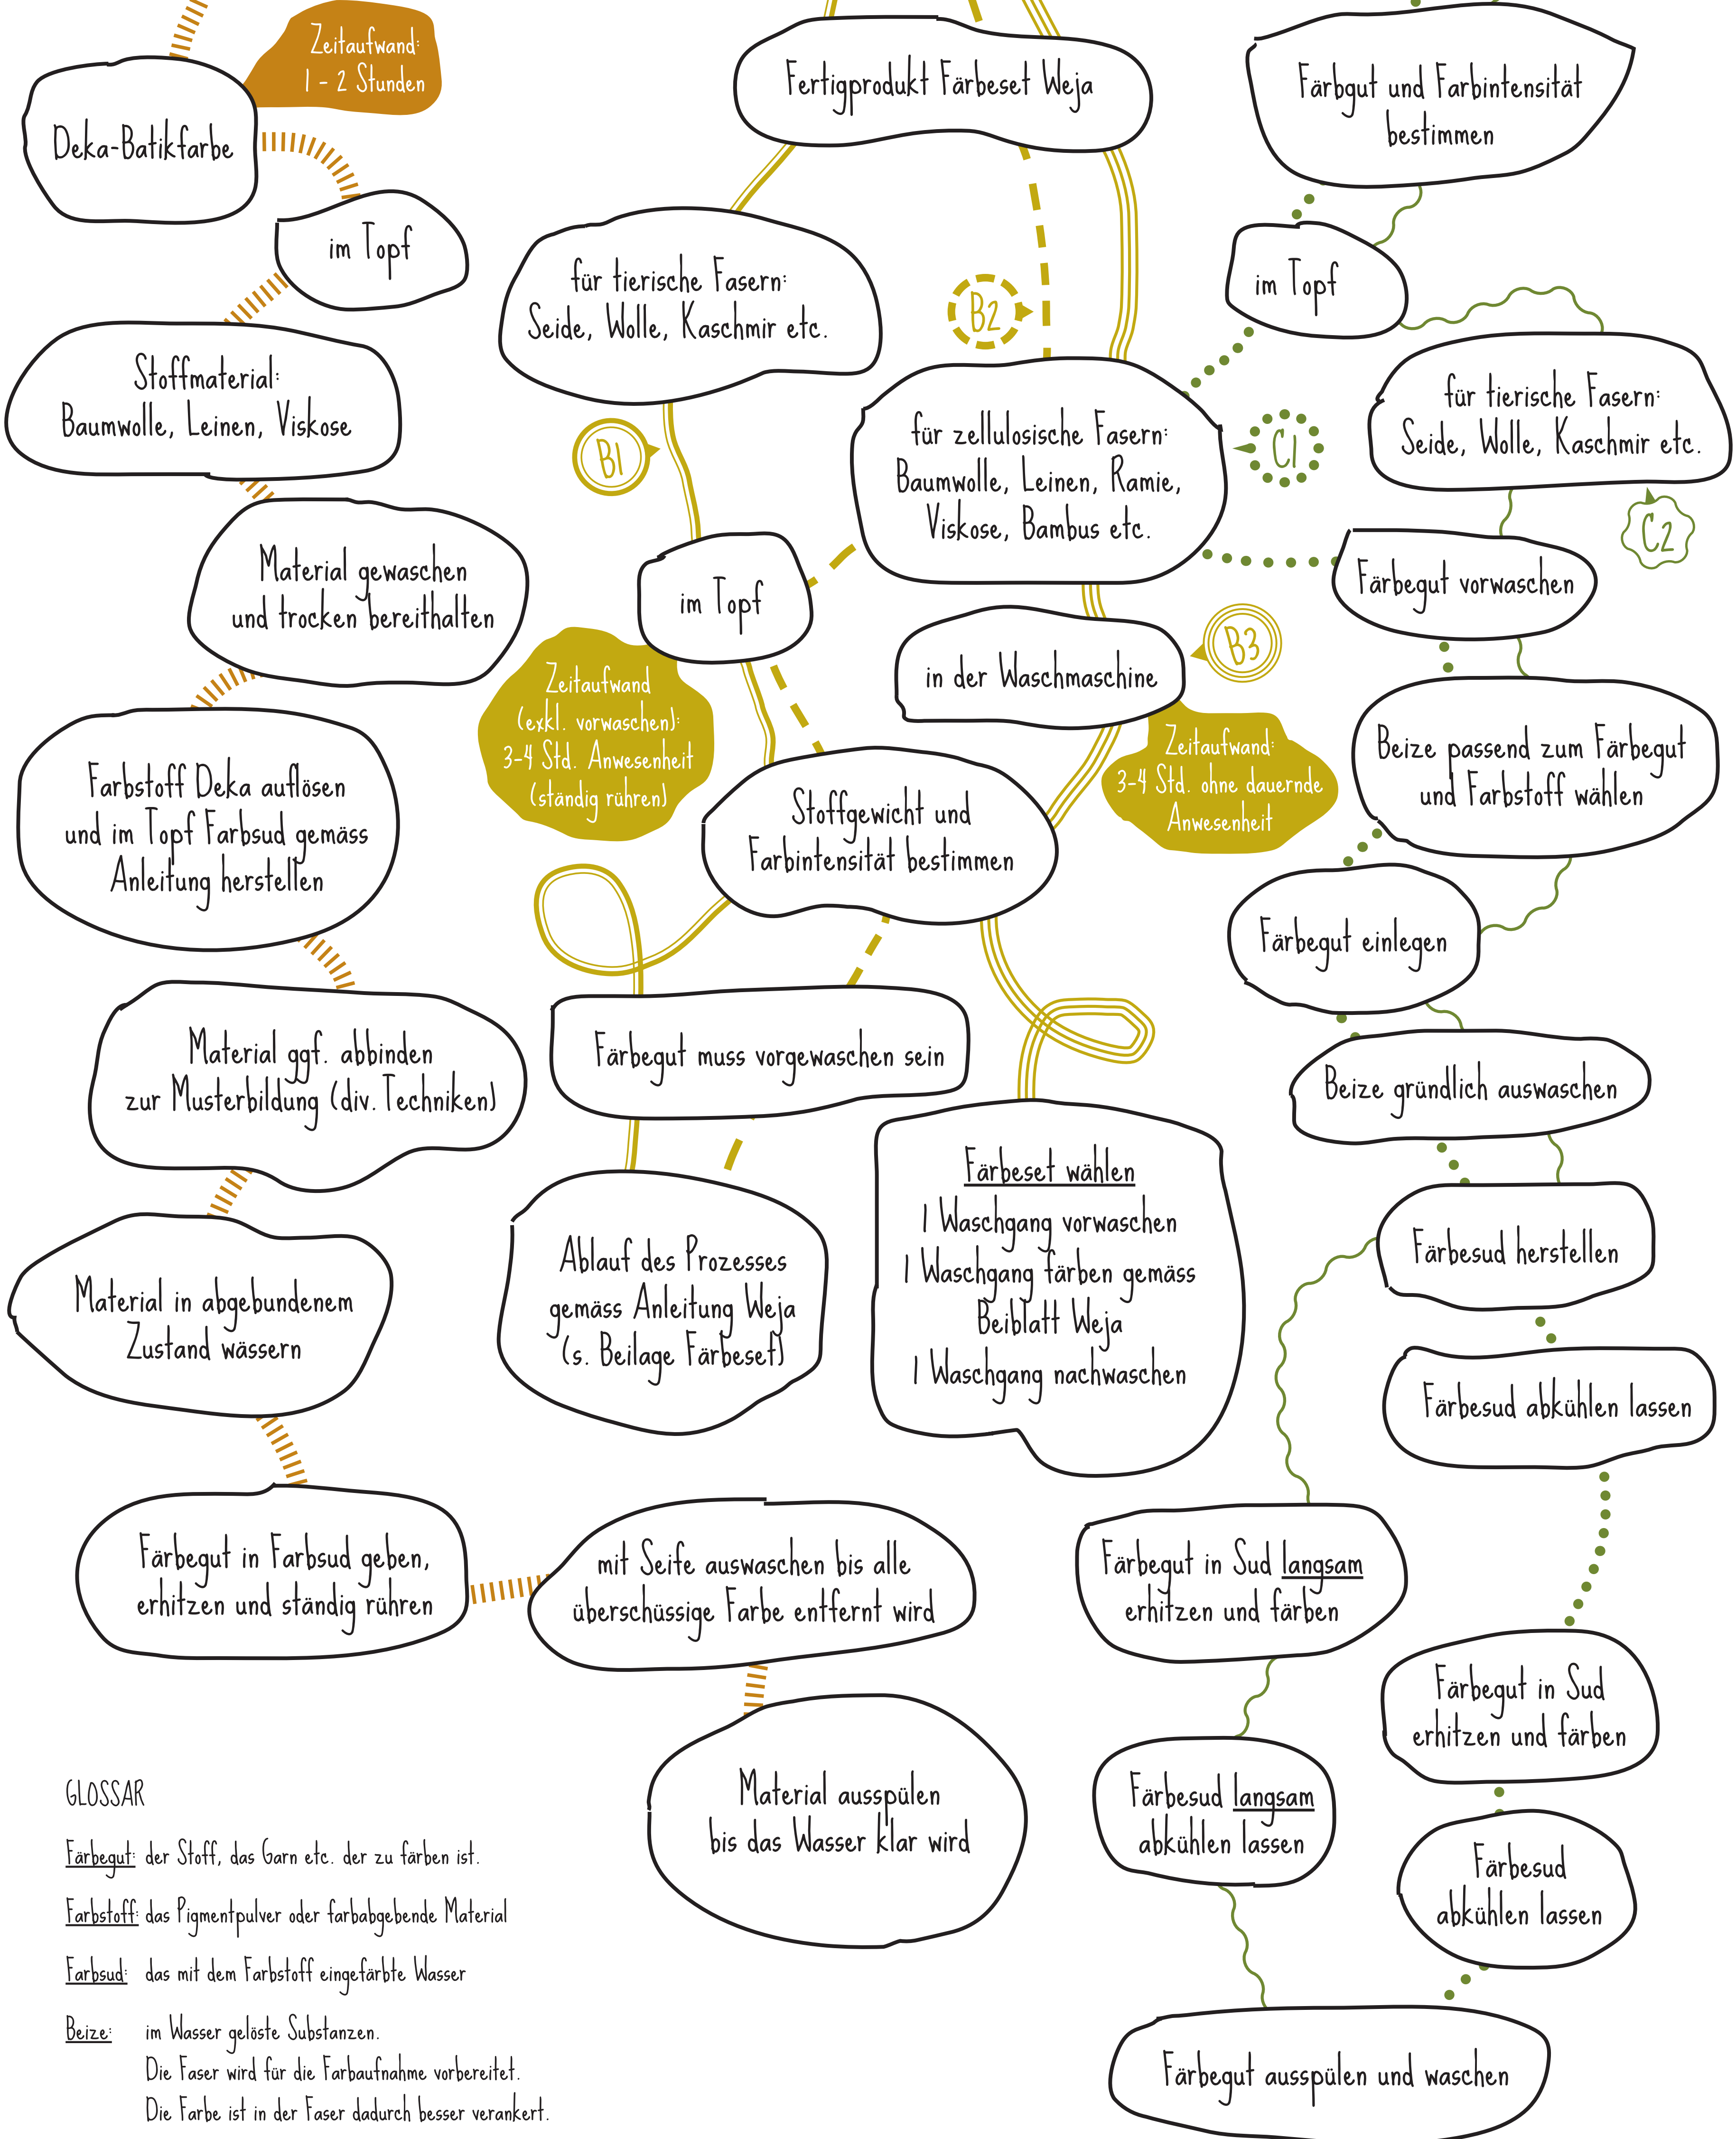 Zeitaufwand:
1 - 2 Stunden
Deka-Batikfarbe
im Topf
Stoffmaterial:
Baumwolle, Leinen, Viskose
Material gewaschen
und trocken bereithalten
Farbstoff Deka auflösen
und im Topf Farbsud gemäss
Anleitung herstellen
Material ggf. abbinden
zur Musterbildung (div. Techniken)
Material in abgebundenem
Zustand wässern
Färbegut in Farbsud geben,
erhitzen und ständig rühren
mit Seife auswaschen bis alle
überschüssige Farbe entfernt wird
Material ausspülen
bis das Wasser klar wird
Fertigprodukt Färbeset Weja
für tierische Fasern:
Seide, Wolle, Kaschmir etc.
B1
B2
für zellulosische Fasern:
Baumwolle, Leinen, Ramie,
Viskose, Bambus etc.
im Topf
in der Waschmaschine
B3
Zeitaufwand
(exkl. vorwaschen):
3-4 Std. Anwesenheit
(ständig rühren)
Zeitaufwand:
3-4 Std. ohne dauernde
Anwesenheit
Stoffgewicht und
Farbintensität bestimmen
Färbegut muss vorgewaschen sein
Ablauf des Prozesses
gemäss Anleitung Weja
(s. Beilage Färbeset)
Färbeset wählen
1 Waschgang vorwaschen
1 Waschgang färben gemäss
Beiblatt Weja
1 Waschgang nachwaschen
Färbgut und Farbintensität
bestimmen
im Topf
C1
für tierische Fasern:
Seide, Wolle, Kaschmir etc.
C2
Färbegut vorwaschen
Beize passend zum Färbegut
und Farbstoff wählen
Färbegut einlegen
Beize gründlich auswaschen
Färbesud herstellen
Färbesud abkühlen lassen
Färbegut in Sud langsam
erhitzen und färben
Färbegut in Sud
erhitzen und färben
Färbesud langsam
abkühlen lassen
Färbesud
abkühlen lassen
Färbegut ausspülen und waschen
GLOSSAR
Färbegut: der Stoff, das Garn etc. der zu färben ist.
Farbstoff: das Pigmentpulver oder farbabgebende Material
Farbsud: das mit dem Farbstoff eingefärbte Wasser
Beize: im Wasser gelöste Substanzen.
Die Faser wird für die Farbaufnahme vorbereitet.
Die Farbe ist in der Faser dadurch besser verankert.